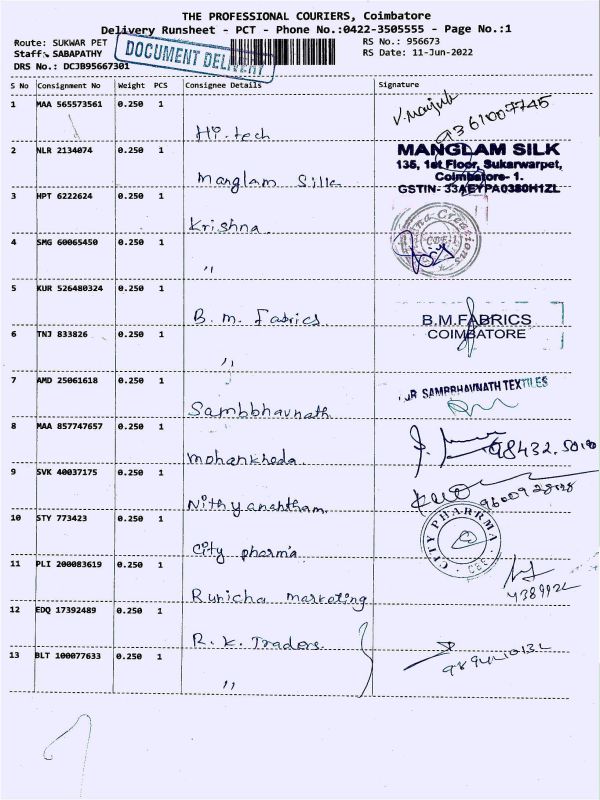 THE PROFESSIONAL COURIERS, Coimbatore
Delivery Runsheet - PCT - Phone No.:0422-3505555 - Page No.:1
Route: SUKWAR PET
RS No.: 956673
Staff: SABAPATHY
RS Date: 11-Jun-2022
DRS No.: DCJB95667301
DOCUMENT DELIVERY
S No Consignment No Weight PCS Consignee Details Signature
1 MAA 565573561 0.250 1
Hi-tech
93610 07745
2 NLR 2134074 0.250 1
Manglam Silk
MANGLAM SILK
135, 1st Floor, Sukarwarpet,
Coimbatore- 1.
GSTIN- 33AEYPA0380H1ZL
3 HPT 6222624 0.250 1
Krishna
4 SMG 60065450 0.250 1
"
5 KUR 526480324 0.250 1
B. M. Fabrics
B.M.FABRICS
COIMBATORE
6 TNJ 833826 0.250 1
"
7 AMD 25061618 0.250 1
Sambbhavnath
SAMBBHAVNATH TEXTILES
8 MAA 857747657 0.250 1
mohankheda
9 SVK 40037175 0.250 1
Nithyanantham
10 STY 773423 0.250 1
City pharma
CITY PHARRMA
CBE
11 PLI 200083619 0.250 1
Runicha marketing
12 EDQ 17392489 0.250 1
R. K. Traders
13 BLT 100077633 0.250 1
"